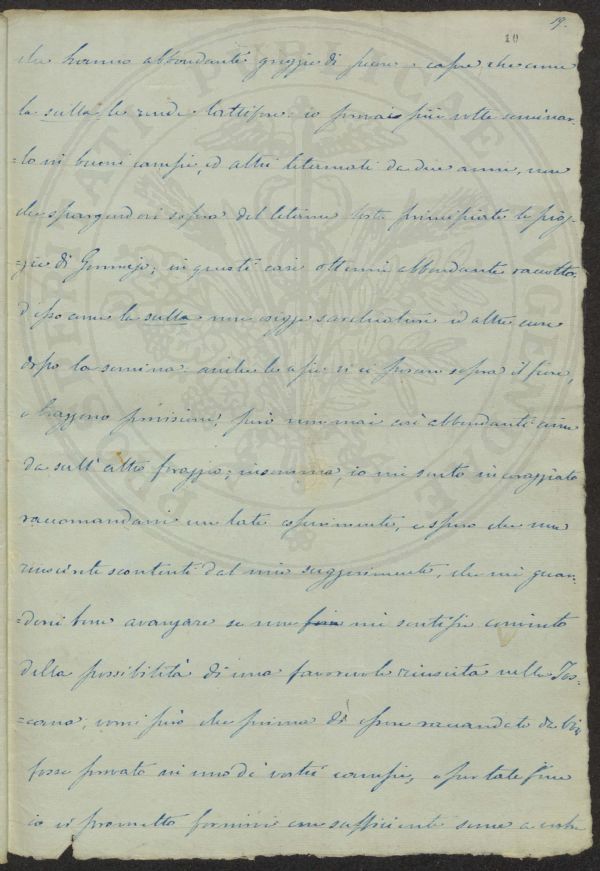 19.
10
che hanno abbondanti greggie di pecore e capre, che come
la sulla le rende lattifere: io provai più volte seminar-
=lo in buoni campi, ed altri letamati da due anni, non
che spargendovi sopra del letame   principiate le piog-
=gie di Gennajo; in questi casi ottenni abbondante raccolta.
D'esso come la sulla non esigge sarchiature ed altre cure
dopo la semina. anche le api vi si posano sopra il fiore,
e traggono provisioni, però non mai così abbondanti come
da sull' altro foraggio; insomma, io mi sento incoraggiato
raccomandarvi un tale esperimento, e spero che non
riuscirete scontenti dal mio suggerimento, che mi guar-
=derei bene avanzare se non mi sentissi convinto
della possibilità di una favorevole riuscita nella Tos-
=cana; vorrei però che prima di essere raccomandato da Voi
fosse provato in uno de' vostri campi, e per tale fine
io vi prometto fornirvi con sufficiente seme a